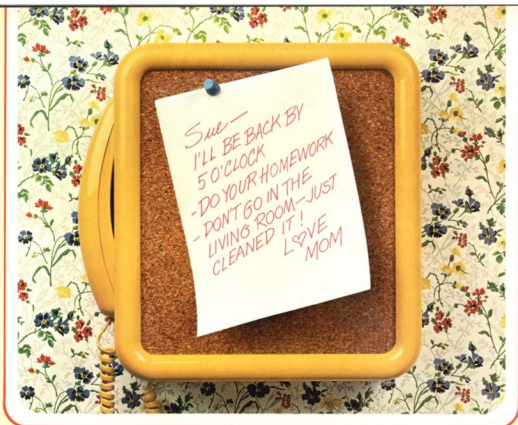 Sue—
I'LL BE BACK BY
5 O'CLOCK
-DO YOUR HOMEWORK
-DON'T GO IN THE
LIVING ROOM—JUST
CLEANED IT!
L♡VE
MOM